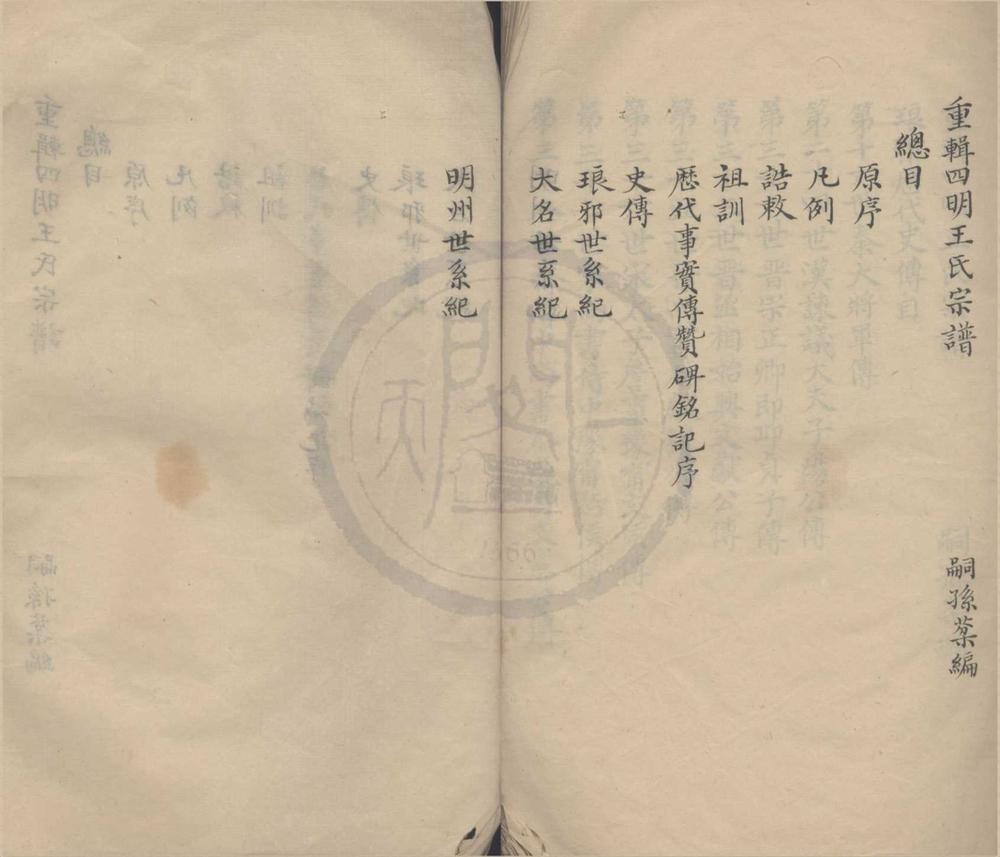 重輯四明王氏宗譜
嗣孫荣編
總目
原序
凡例
誥敕
祖訓
歷代事實傳贊碑銘記序
史傳
琅邪世系紀
大名世系紀
明州世系紀